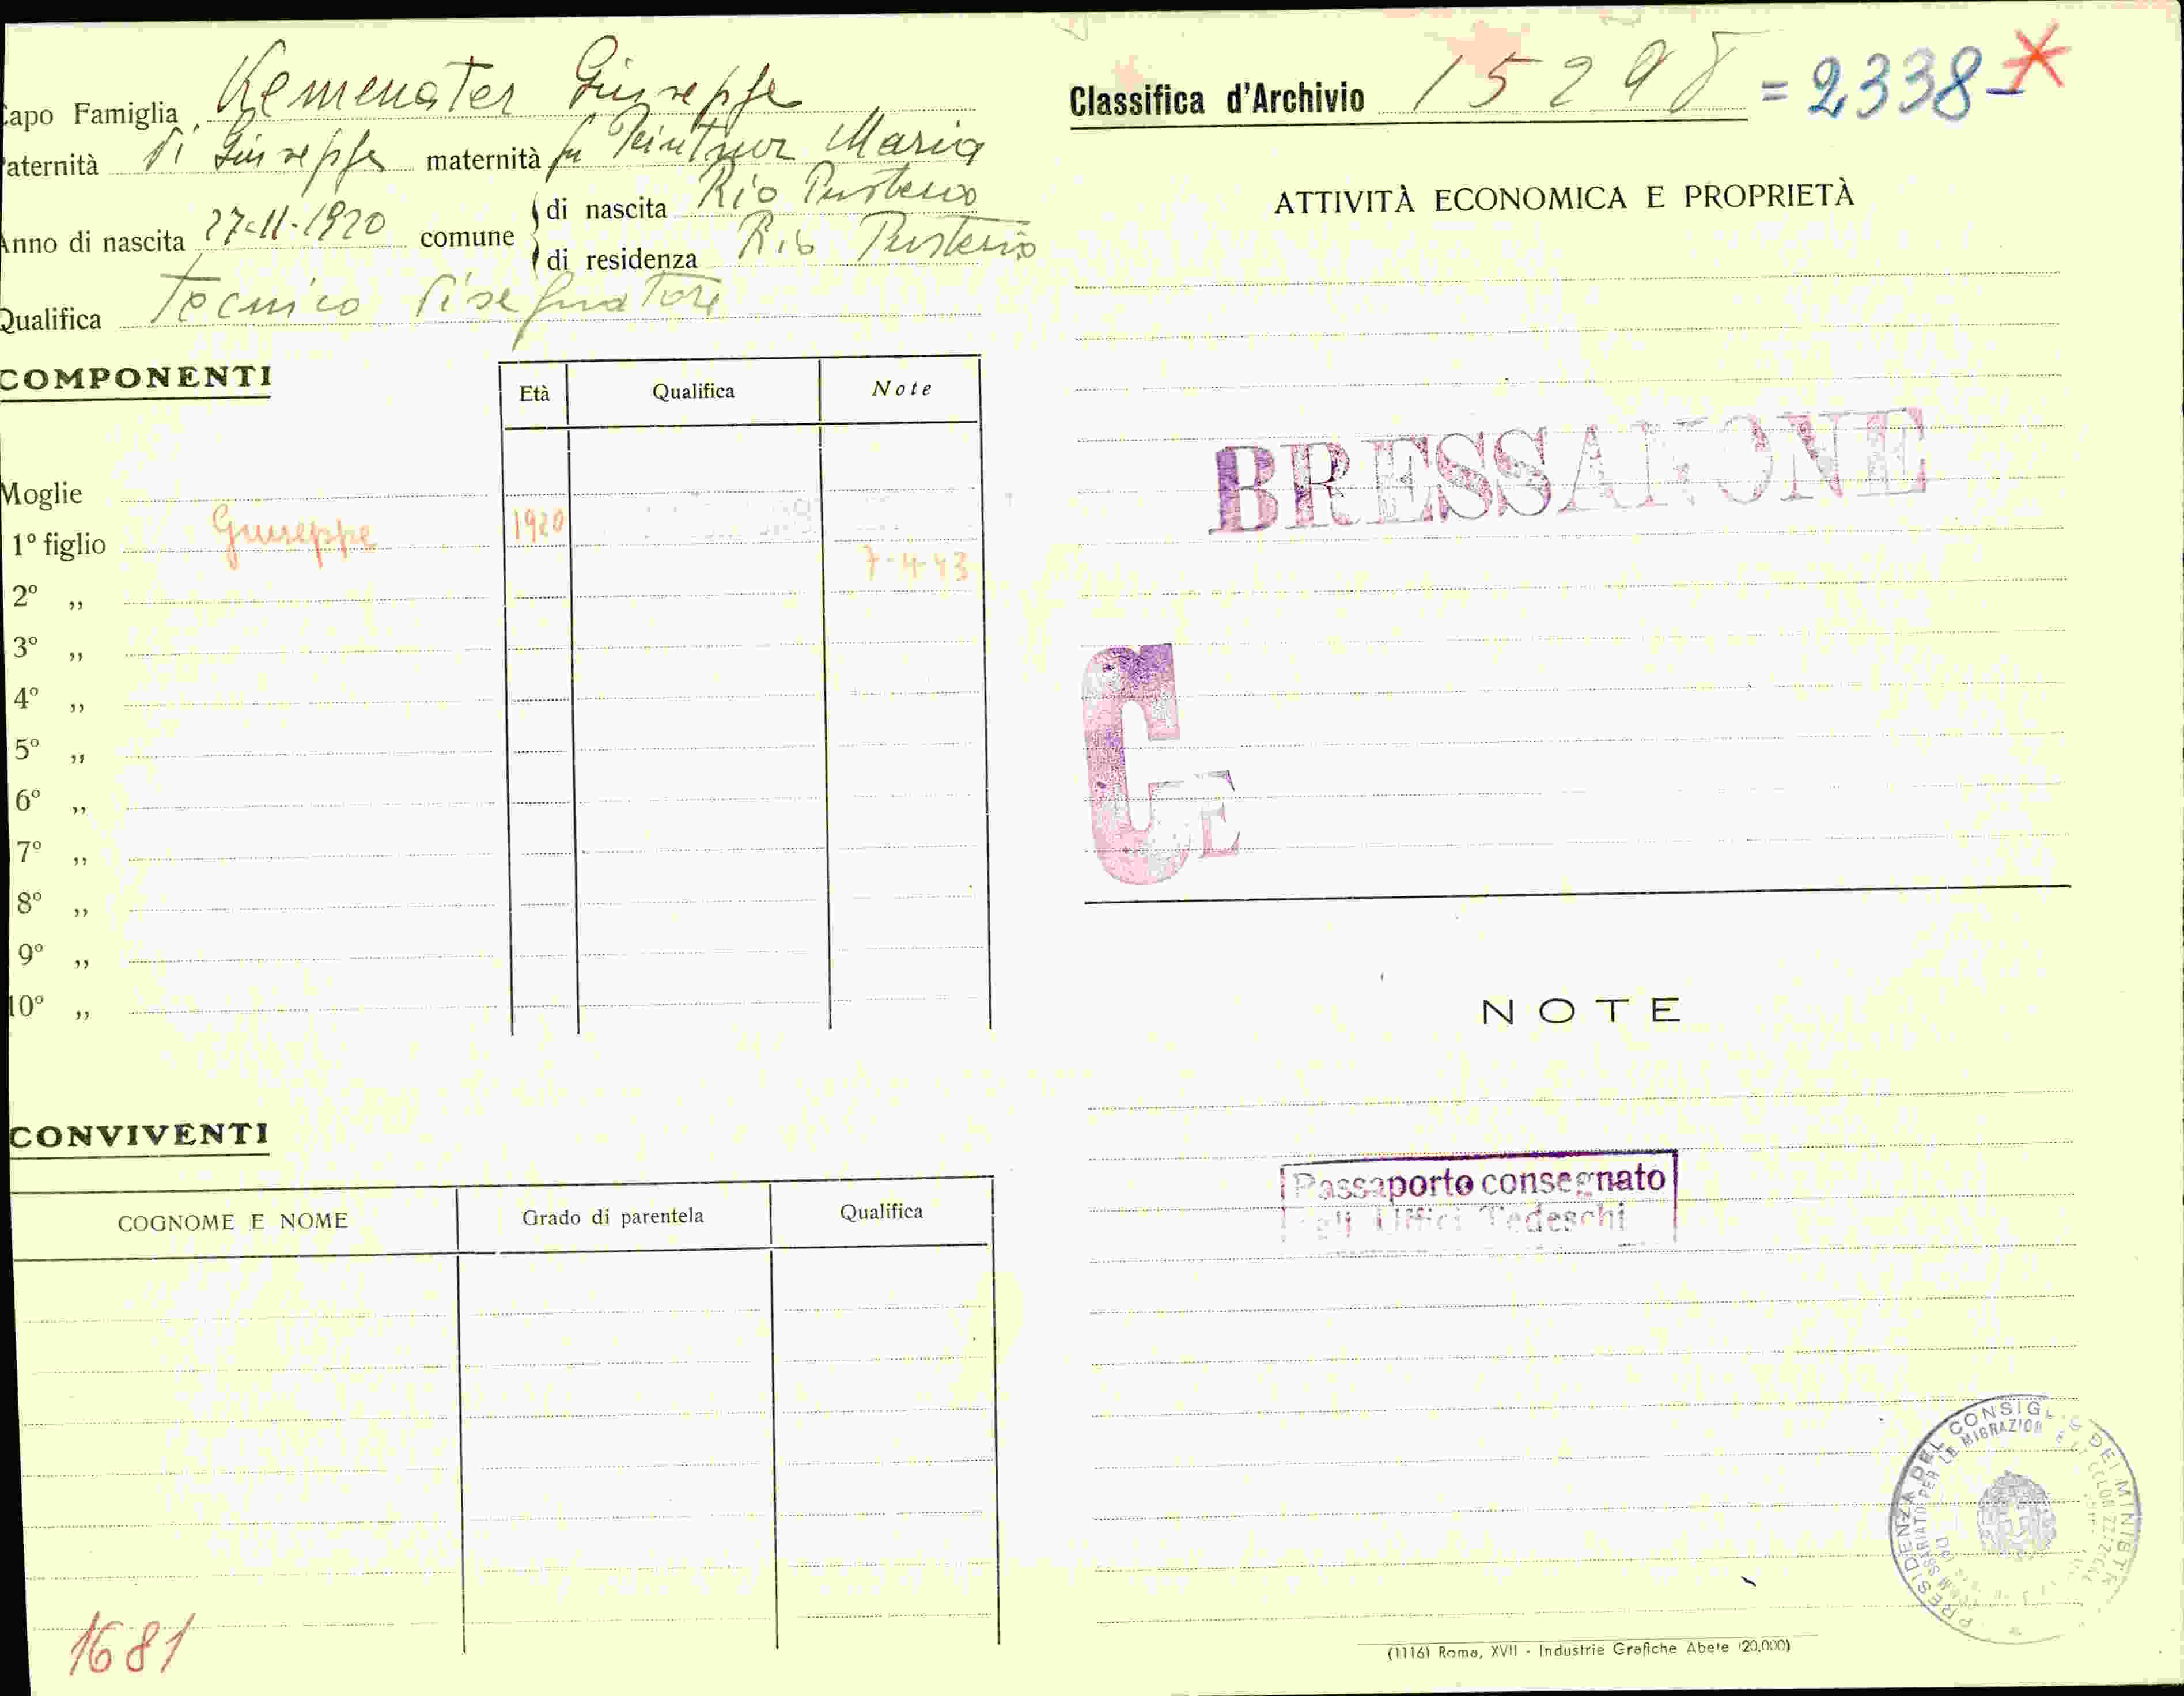 Capo Famiglia Kemenater Giuseppe
Paternità di Giuseppe maternità fu Maria
Anno di nascita 27-11-1920 comune di nascita Rio Pusteria
di residenza Rio Pusteria
Qualifica Tecnico disegnatore
COMPONENTI
Età Qualifica Note
Moglie
1º figlio Giuseppe 1920
7-4-43
2º „
3º „
4º „
5º „
6º „
7º „
8º „
9º „
10º „
CONVIVENTI
COGNOME E NOME Grado di parentela Qualifica
1681
Classifica d'Archivio 15298 = 2338
ATTIVITÀ ECONOMICA E PROPRIETÀ
BRESSANONE
C E
NOTE
Passaporto consegnato
agli Uffici Tedeschi
PRESIDENZA DEL CONSIGLIO DEI MINISTRI
(1116) Roma, XVII - Industrie Grafiche Abete (20,000)